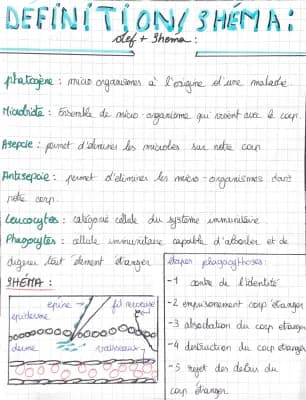 DEFINITION/SHÉMA:
def + Shema:
phatogène: micro organismes à l'origine d'une maladie
Microbiote: Ensemble de micro-organisme qui vivent avec le corp.
Asepsie: permet d'éliminer les microbes sur notre corp
Antisepsie: permet d'éliminer les micro-organismes dans
notre corp.
Leucocytes: catégorie cellule du système immunitaire
Phagocytes: cellule immunitaire capable d'absorber et de
digérer tout élement étranger
SHÉMA:
épine
fil nerveuse
épiderme
derme
vaisseaux
étapes phagocythoses:
-1 contre de l'identité
-2 emprisonement corp étranger
-3 absorbation du corp étranger
-4 destruction du corp étranger
-5 rejet des debris du
corp étranger